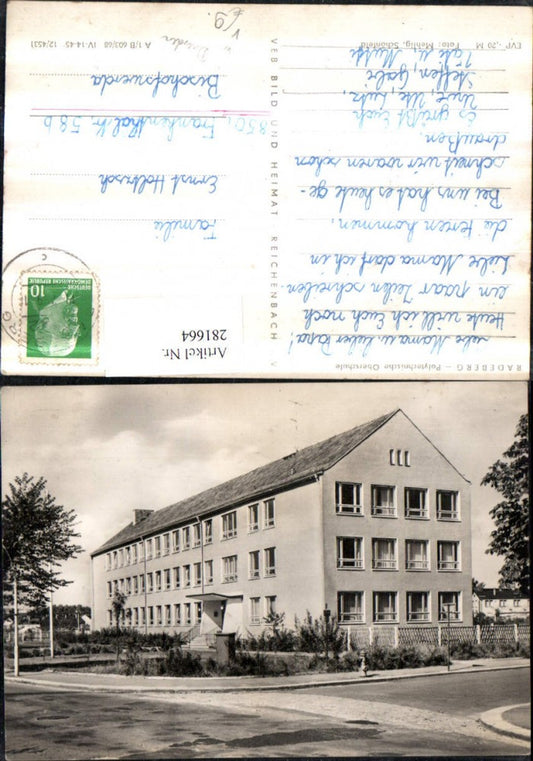 RADEBERG – Polytechnische Oberschule
liebe Mama u. lieber Papa!
Heute will ich Euch noch
ein paar Zeilen schreiben.
Liebe Mama darf ich in
die kommen.
Bei uns hat es heute ge-
schneit wir waren schon
draußen.
Es grüßt Euch
Uwe, Ute, Lutz,
Steffen, Gabi
Tante u.
EVP -,20 M
Foto: Mehlig, Schönfeld
A 1/B 603/68 IV-14-45 12/4531
VEB BILD UND HEIMAT REICHENBACH V
DEUTSCHE
DEMOKRATISCHE REPUBLIK
10
Familie
Ernst Holtzsch
850
Frankenthaler 58 b
Bischofswerda
Dresden
Artikel Nr.
281664